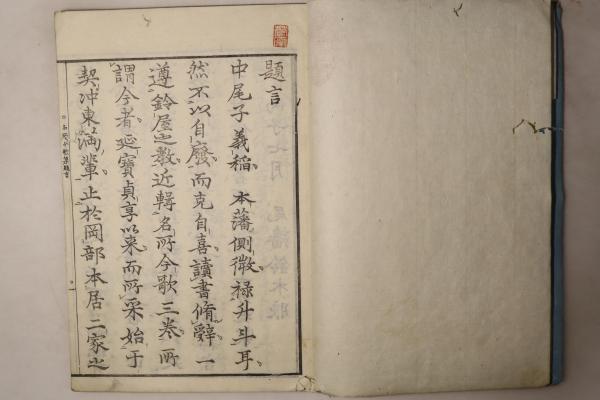 題言
中尾子義稲本藩側微禄升斗耳
然不以自廢而克自喜讀書脩辭一
遵鈴屋之教近輯名所今歌三巻所
謂今者延寶貞享以来而所采始于
契沖東満輩止於岡部本居二家之